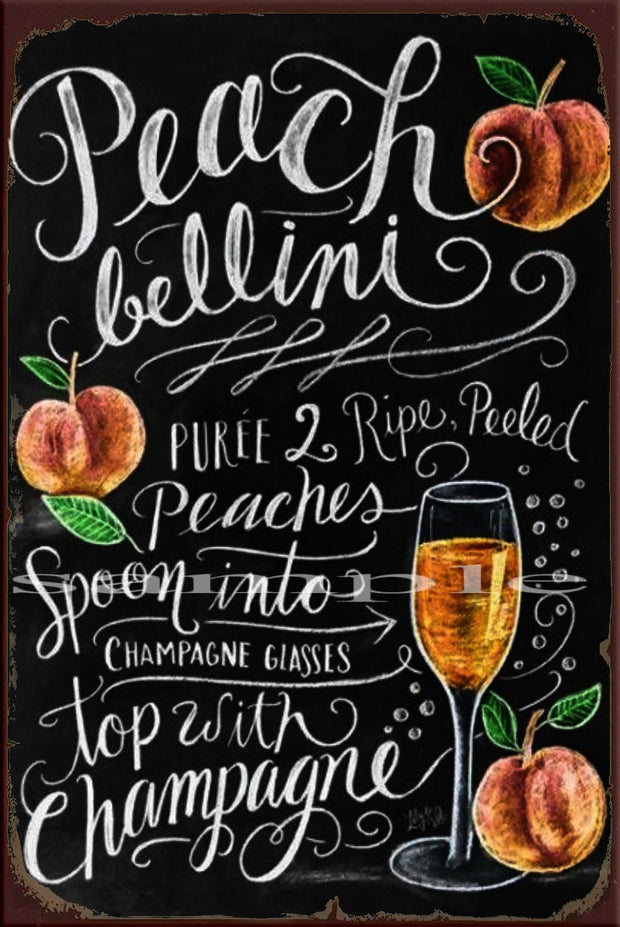 Peach
bellini
PURÉE 2 Ripe, Peeled
Peaches
Spoon into
sample
CHAMPAGNE GLASSES
top with
Champagne